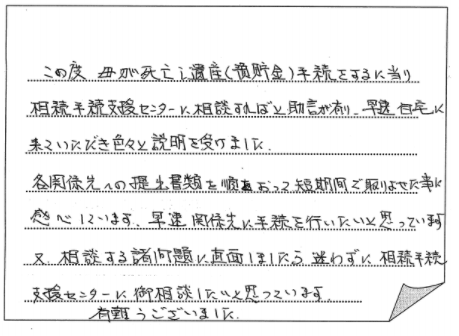 この度 母が死亡し遺産(預貯金)手続をするに当り
相続手続支援センターに相談すればと助言が有り、早速自宅に
来ていただき色々と説明を受けました。
各関係先への提出書類を順をおって短期間で取りよせた事に
感心しています。早速関係先に手続を行いたいと思っています
又 相談する諸問題に直面しましたら 迷わずに 相続手続
支援センターに御相談したいと思っています。
有難うございました。